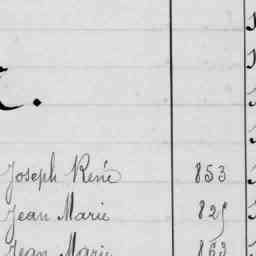 Joseph René 853
Jean Marie 825
Jean Marie 863